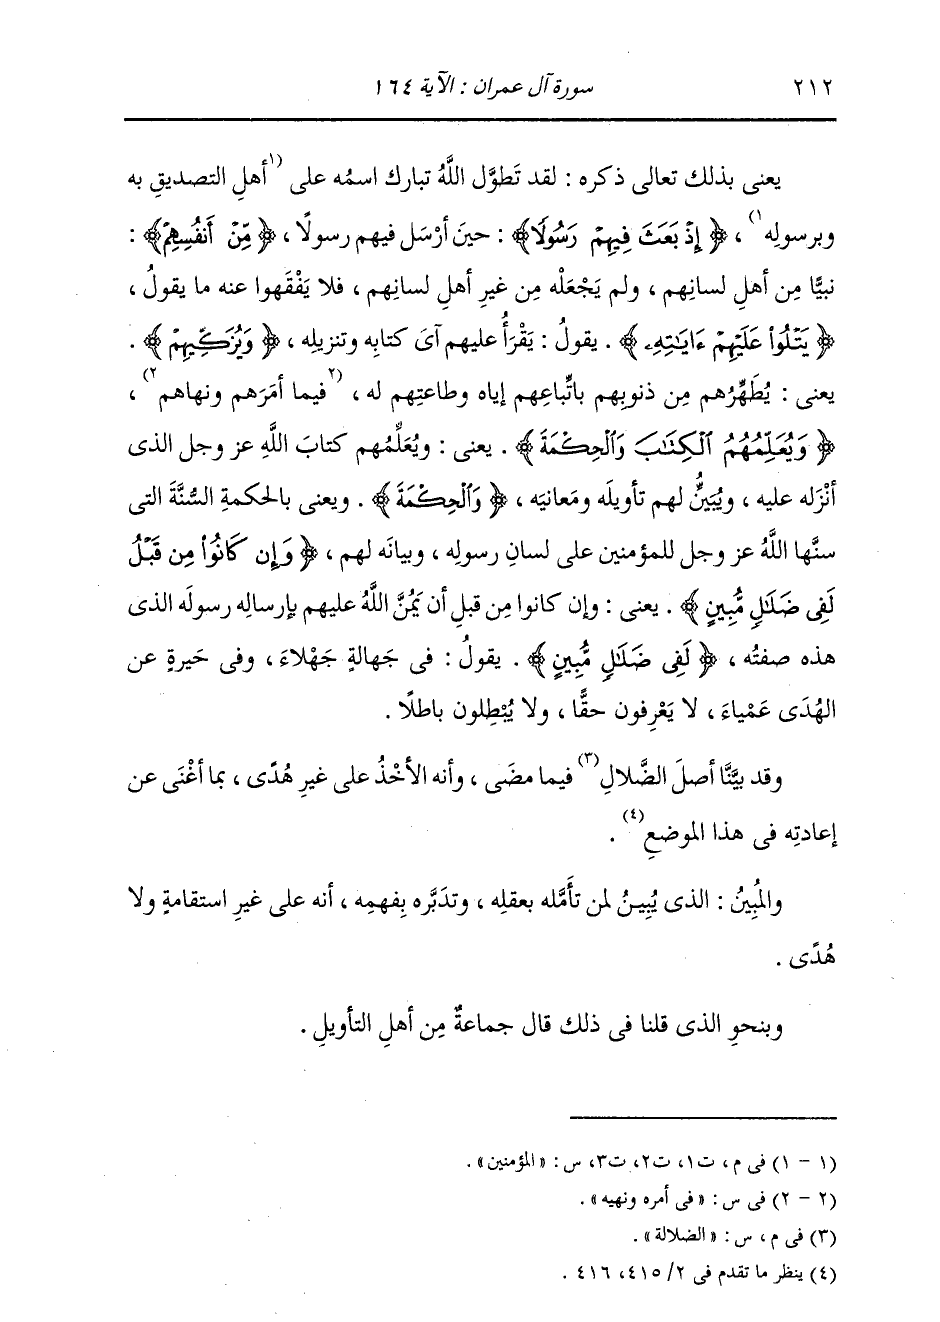 ٢١٢ سورة آل عمران : الآية ١٦٤
يعنى بذلك تعالى ذكره : لقد تَطوَّل اللَّهُ تبارك اسمُه على (١أهلِ التصديقِ به
وبرسولِه١) ، ﴿ إِذْ بَعَثَ فِيهِمْ رَسُولًا﴾ : حينَ أرْسَل فيهم رسولًا ، ﴿ مِّنْ أَنفُسِهِمْ﴾ :
نبيًّا مِن أهلِ لسانِهم ، ولم يَجْعَلْه مِن غيرِ أهلِ لسانِهم ، فلا يَفْقَهوا عنه ما يقولُ ،
﴿ يَتْلُوا۟ عَلَيْهِمْ ءَايَٰتِهِۦ ﴾ . يقولُ : يَقْرَأُ عليهم آىَ كتابِه وتنزيلِه ، ﴿ وَيُزَكِّيهِمْ ﴾ .
يعنى : يُطَهِّرُهم مِن ذنوبِهم باتِّباعِهم إياه وطاعتِهم له ، (٢فيما أمَرَهم ونهاهم٢) ،
﴿ وَيُعَلِّمُهُمُ ٱلْكِتَٰبَ وَٱلْحِكْمَةَ ﴾ . يعنى : ويُعَلِّمُهم كتابَ اللَّهِ عز وجل الذى
أنْزَله عليه ، ويُبَيِّنُ لهم تأويلَه ومَعانيَه ، ﴿ وَٱلْحِكْمَةَ ﴾ . ويعنى بالحكمةِ السُّنَّةَ التى
سنَّها اللَّهُ عز وجل للمؤمنين على لسانِ رسولِه ، وبيانَه لهم ، ﴿ وَإِن كَانُوا۟ مِن قَبْلُ
لَفِى ضَلَٰلٍ مُّبِينٍ ﴾ . يعنى : وإن كانوا مِن قبلِ أن يَمُنَّ اللَّهُ عليهم بإرسالِه رسولَه الذى
هذه صفتُه ، ﴿ لَفِى ضَلَٰلٍ مُّبِينٍ ﴾ . يقولُ : فى جَهالةٍ جَهْلاءَ ، وفى حَيرةٍ عن
الهُدَى عَمْياءَ ، لا يَعْرِفون حقًّا ، ولا يُبْطِلون باطلًا .
وقد بيَّنَّا أصلَ الضَّلالِ(٣) فيما مضَى ، وأنه الأخْذُ على غيرِ هُدًى ، بما أغْنَى عن
إعادتِه فى هذا الموضعِ(٤) .
والمُبِينُ : الذى يُبِينُ لمن تأَمَّله بعقلِه ، وتدَبَّره بِفهمِه ، أنه على غيرِ استقامةٍ ولا
هُدًى .
وبنحوِ الذى قلنا فى ذلك قال جماعةٌ مِن أهلِ التأويلِ .
(١ - ١) فى م ، ت١، ت٢، ت٣، س : « المؤمنين» .
(٢ - ٢) فى س : « فى أمره ونهيه» .
(٣) فى م ، س : « الضلالة» .
(٤) ينظر ما تقدم فى ٢/ ٤١٥، ٤١٦ .